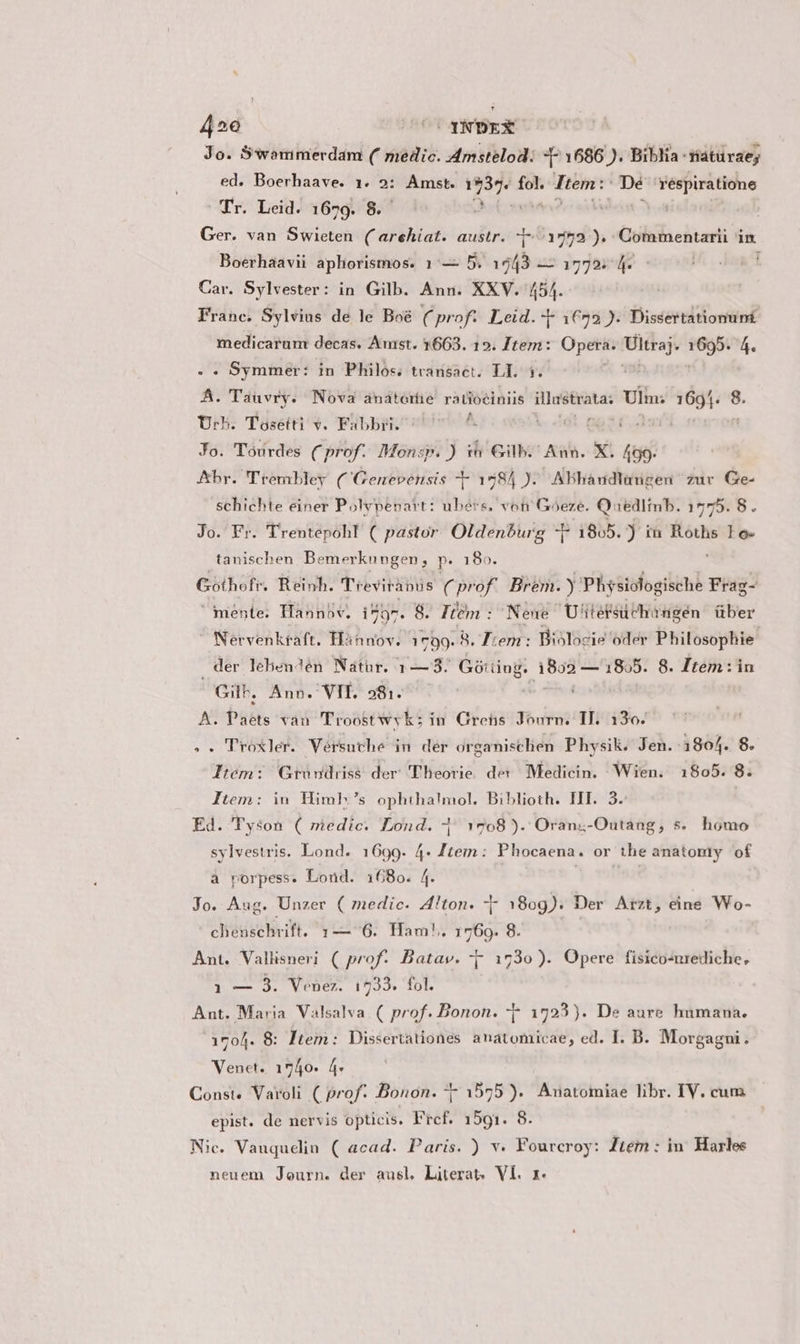 420 INDEX
Jo. Swammerdam ( medic. Amstelod. † 1686 ). Biblia naturae,
ed. Boerhaave. 1. 2: Amst. 1737. fol. Item: De respiratione
Tr. Leid. 1679. 8.
Ger. van Swieten ( archiat. austr. † 1772 ). Commentarii in
Boerhaavii aphorismos. 1 — 5. 1743 — 1772. 4.
Car. Sylvester: in Gilb. Ann. XXV. 454.
Franc. Sylvius de le Boë ( prof. Leid. † 1672 ). Dissertationum
medicarum decas. Amst. 1663. 12. Item: Opera. Ultraj. 1695. 4.
. . Symmer: in Philos. transact. LI. 1.
A. Tauvry. Nova anatome ratiociniis illustrata. Ulm. 1694. 8.
Urb. Tosetti v. Fabbri.
Jo. Tourdes ( prof. Monsp. ) in Gilb. Ann. X. 499.
Abr. Trembley ( Genevensis † 1784 ). Abhandlungen zur Ge-
schichte einer Polypenart: ubers. von Goeze. Quedlinb. 1775. 8.
Jo. Fr. Trentepohl ( pastor Oldenburg † 1805. ) in Roths bo-
tanischen Bemerkungen, p. 180.
Gothofr. Reinh. Treviranus ( prof Brem. ) Physiologische Frag-
mente. Hannov. 1797. 8. Item: Neue Untersuchungen über
Nervenkraft. Hannov. 1799. 8. Item: Biologie oder Philosophie
der lebenden Natur. 1 — 3. Götting. 1802 — 1805. 8. Item: in
Gilb. Ann. VII. 281.
A. Paets van Troostwyk; in Grens Journ. II. 130.
. . Troxler. Versuche in der organischen Physik. Jen. 1804. 8.
Item: Grundriss der Theorie der Medicin. Wien. 1805. 8.
Item: in Himly's ophthalmol. Biblioth. III. 3.
Ed. Tyson ( medic. Lond. † 1708 ). Orang-Outang, s. homo
sylvestris. Lond. 1699. 4. Item: Phocaena. or the anatomy of
a porpess. Lond. 1680. 4.
Jo. Aug. Unzer ( medic. Alton. † 1809). Der Arzt, eine Wo-
chenschrift. 1 — 6. Hamb. 1769. 8.
Ant. Vallisneri ( prof. Batav. † 1730 ). Opere fisico-mediche.
1 — 3. Venez. 1733. fol.
Ant. Maria Valsalva ( prof. Bonon. † 1723 ). De aure humana.
1704. 8: Item: Dissertationes anatomicae, ed. I. B. Morgagni.
Venet. 1740. 4.
Const. Varoli ( prof. Bonon. † 1575 ). Anatomiae libr. IV. cum
epist. de nervis opticis. Frcf. 1591. 8.
Nic. Vauquelin ( acad. Paris. ) v. Fourcroy: Item: in Harles
neuem Journ. der ausl. Literat. VI. 1.